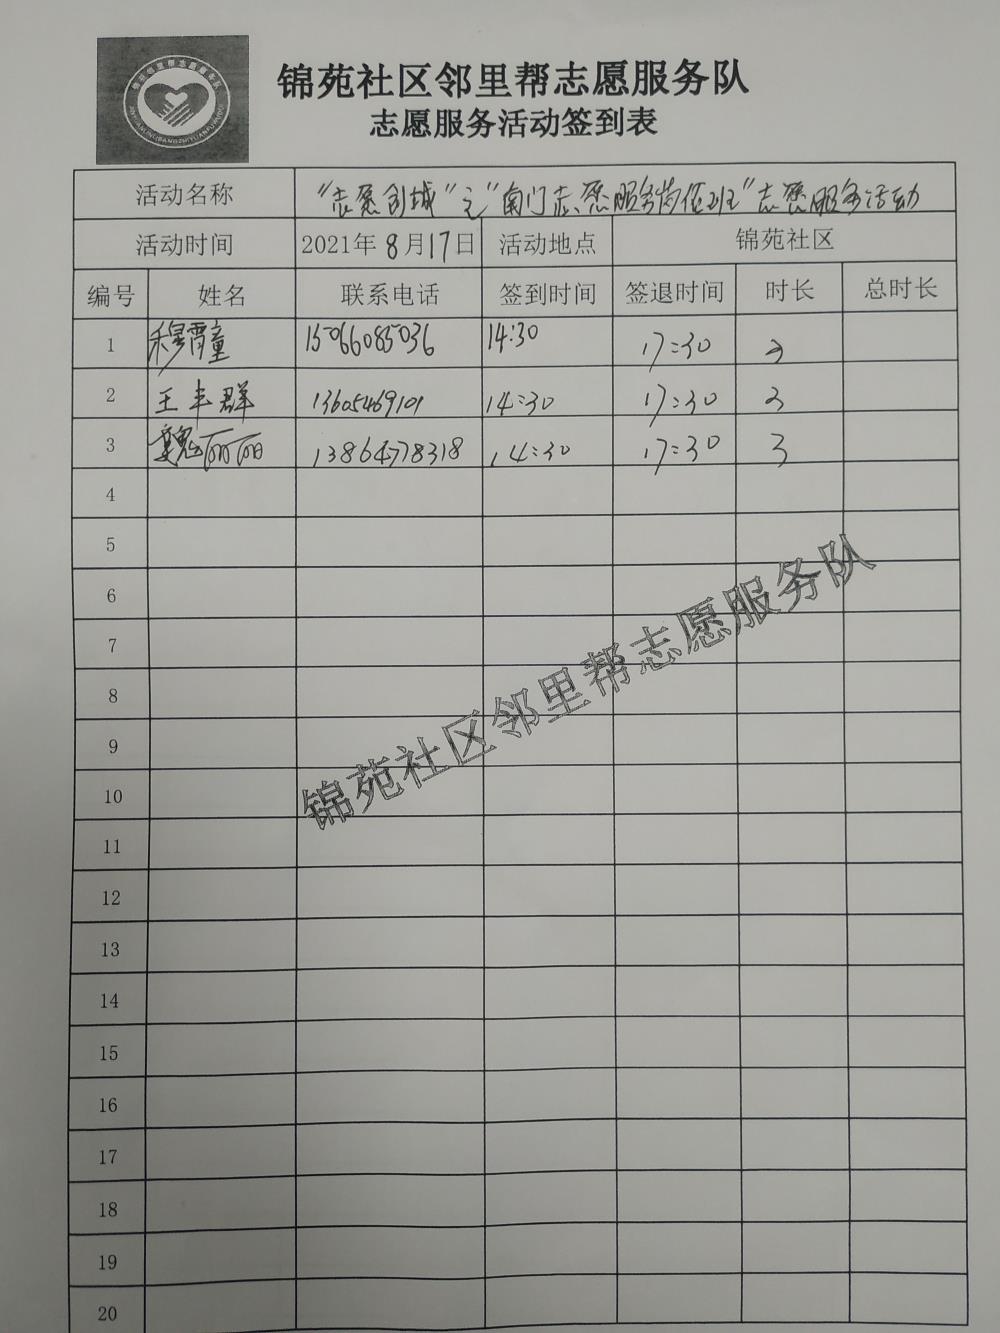 锦苑社区邻里帮志愿服务队
志愿服务活动签到表
活动名称 “志愿创城”之“南门志愿服务岗值班”志愿服务活动
活动时间 2021年8月17日 活动地点 锦苑社区
编号 姓名 联系电话 签到时间 签退时间 时长 总时长
1 穆霄童 15066085036 14:30 17:30 3
2 王丰群 13605469101 14:30 17:30 3
3 魏丽丽 13864778318 14:30 17:30 3
4
5
6
7
8
9
10
11
12
13
14
15
16
17
18
19
20
锦苑社区邻里帮志愿服务队